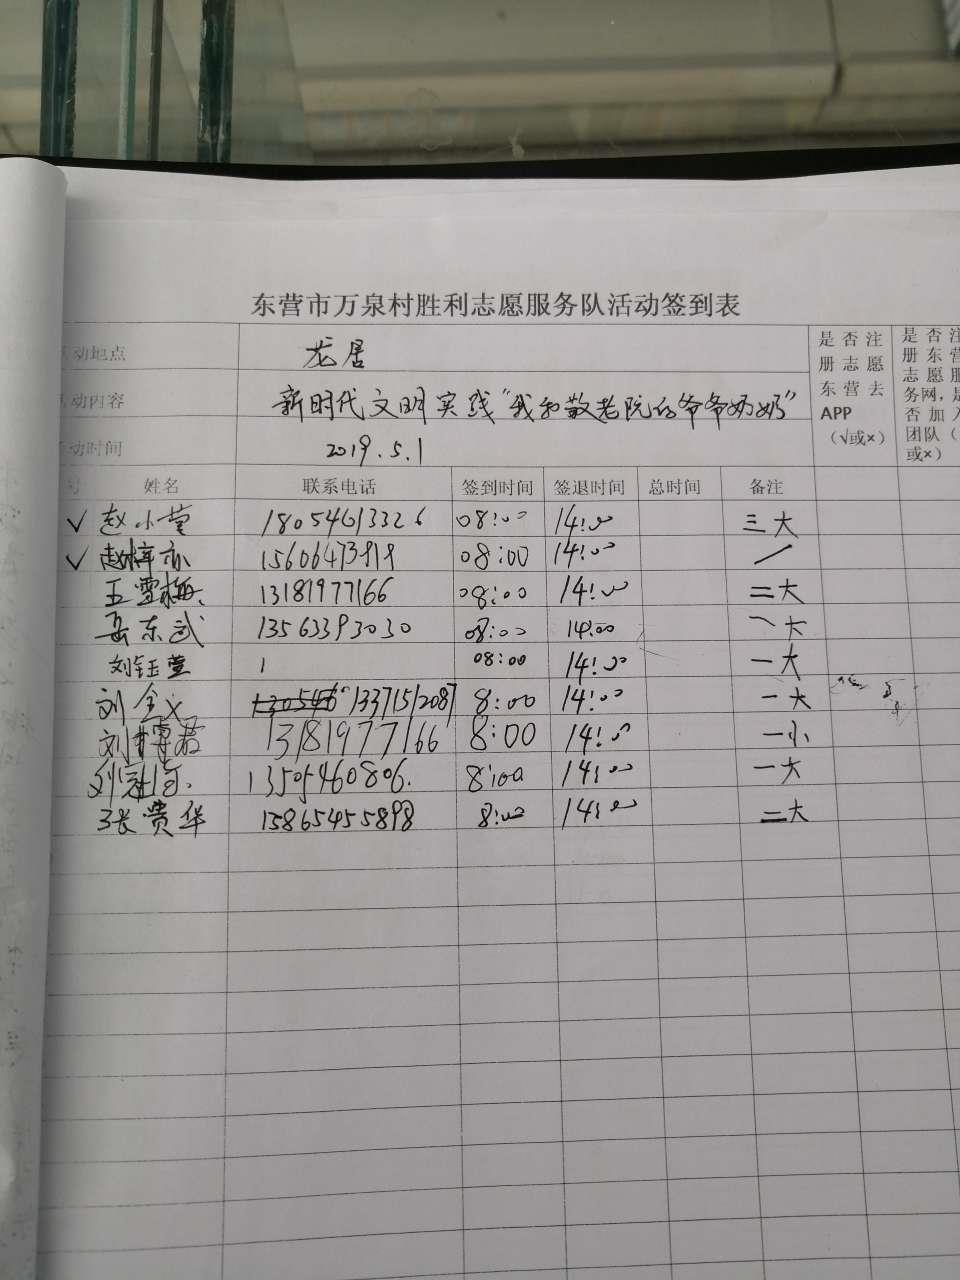 东营市万泉村胜利志愿服务队活动签到表
动地点 龙居
动内容 新时代文明实践"我和敬老院的爷爷奶奶"
动时间 2019.5.1
是否注
册志愿
东营去
APP
（√或×）
是否注
册东营
志愿服
务网，是
否加入
团队（
或×）
号 姓名 联系电话 签到时间 签退时间 总时间 备注
√ 赵小莹 18054613326 08:00 14:00 三大
√ 赵梓亦 15606473919 08:00 14:00 /
王雪梅 13181977166 08:00 14:00 二大
岳东武 13563393030 08:00 14:00 一大
刘钰莹 1 08:00 14:00 一大
刘全义 13371512087 8:00 14:00 一大
刘博君 13181977166 8:00 14:00 一小
刘 13505460806. 8:00 14:00 一大
张贵华 15865455898 8:00 14:00 二大